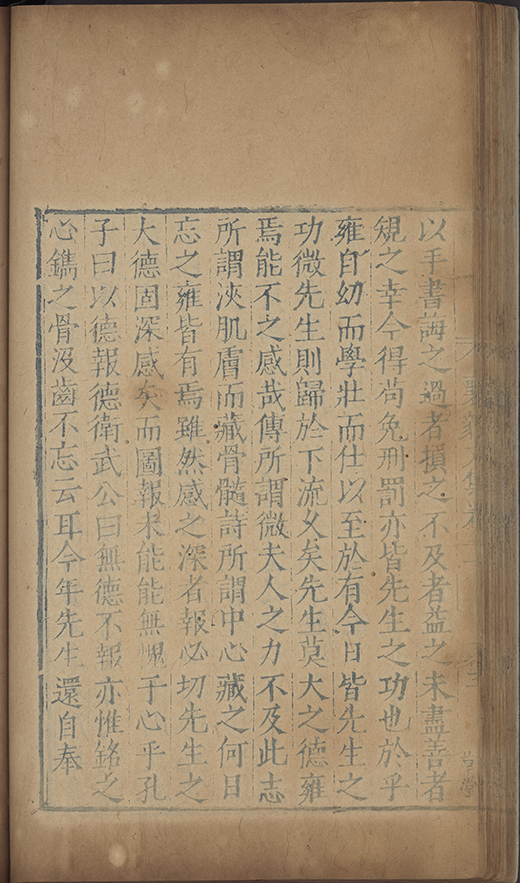 以手書誨之過者損之不及者益之未盡善者
規之幸今得苟免刑罰亦皆先生之功也於乎
雍自幼而學壯而仕以至於有今日皆先生之
功微先生則歸於下流乆矣先生莫大之德雍
焉能不之感哉傳所謂微夫人之力不及此志
所謂浹肌膚而藏骨髓詩所謂中心藏之何日
忘之雍皆有焉雖然感之深者報必切先生之
大德固深感矣而圖報未能能無愧于心乎孔
子曰以德報德衛武公曰無德不報亦惟銘之
心鐫之骨沒齒不忘云耳今年先生還自奉